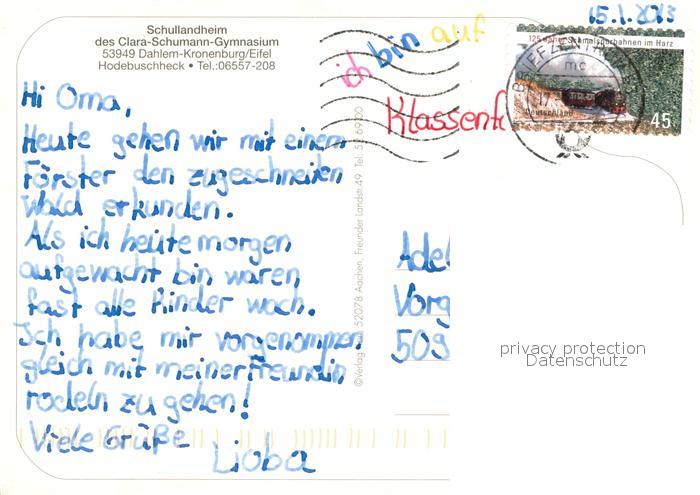 15.1.2013
Schullandheim
des Clara-Schumann-Gymnasium
53949 Dahlem-Kronenburg/Eifel
Hodebuschheck • Tel.:06557-208
ich bin auf
Klassenf
125 Jahre Schmalspurbahnen im Harz
Deutschland
45
BRIEFZENTRUM
Hi Oma,
Heute gehen wir mit einem
Förster den zugeschneiten
Wald erkunden.
Als ich heute morgen
aufgewacht bin waren
fast alle Kinder wach.
Ich habe mir vorgenommen
gleich mit meiner Freundin
rodeln zu gehen!
Viele Grüße
Lioba
52078 Aachen, Freunder Landstr. 49
Adel
Vorg
509
privacy protection
Datenschutz